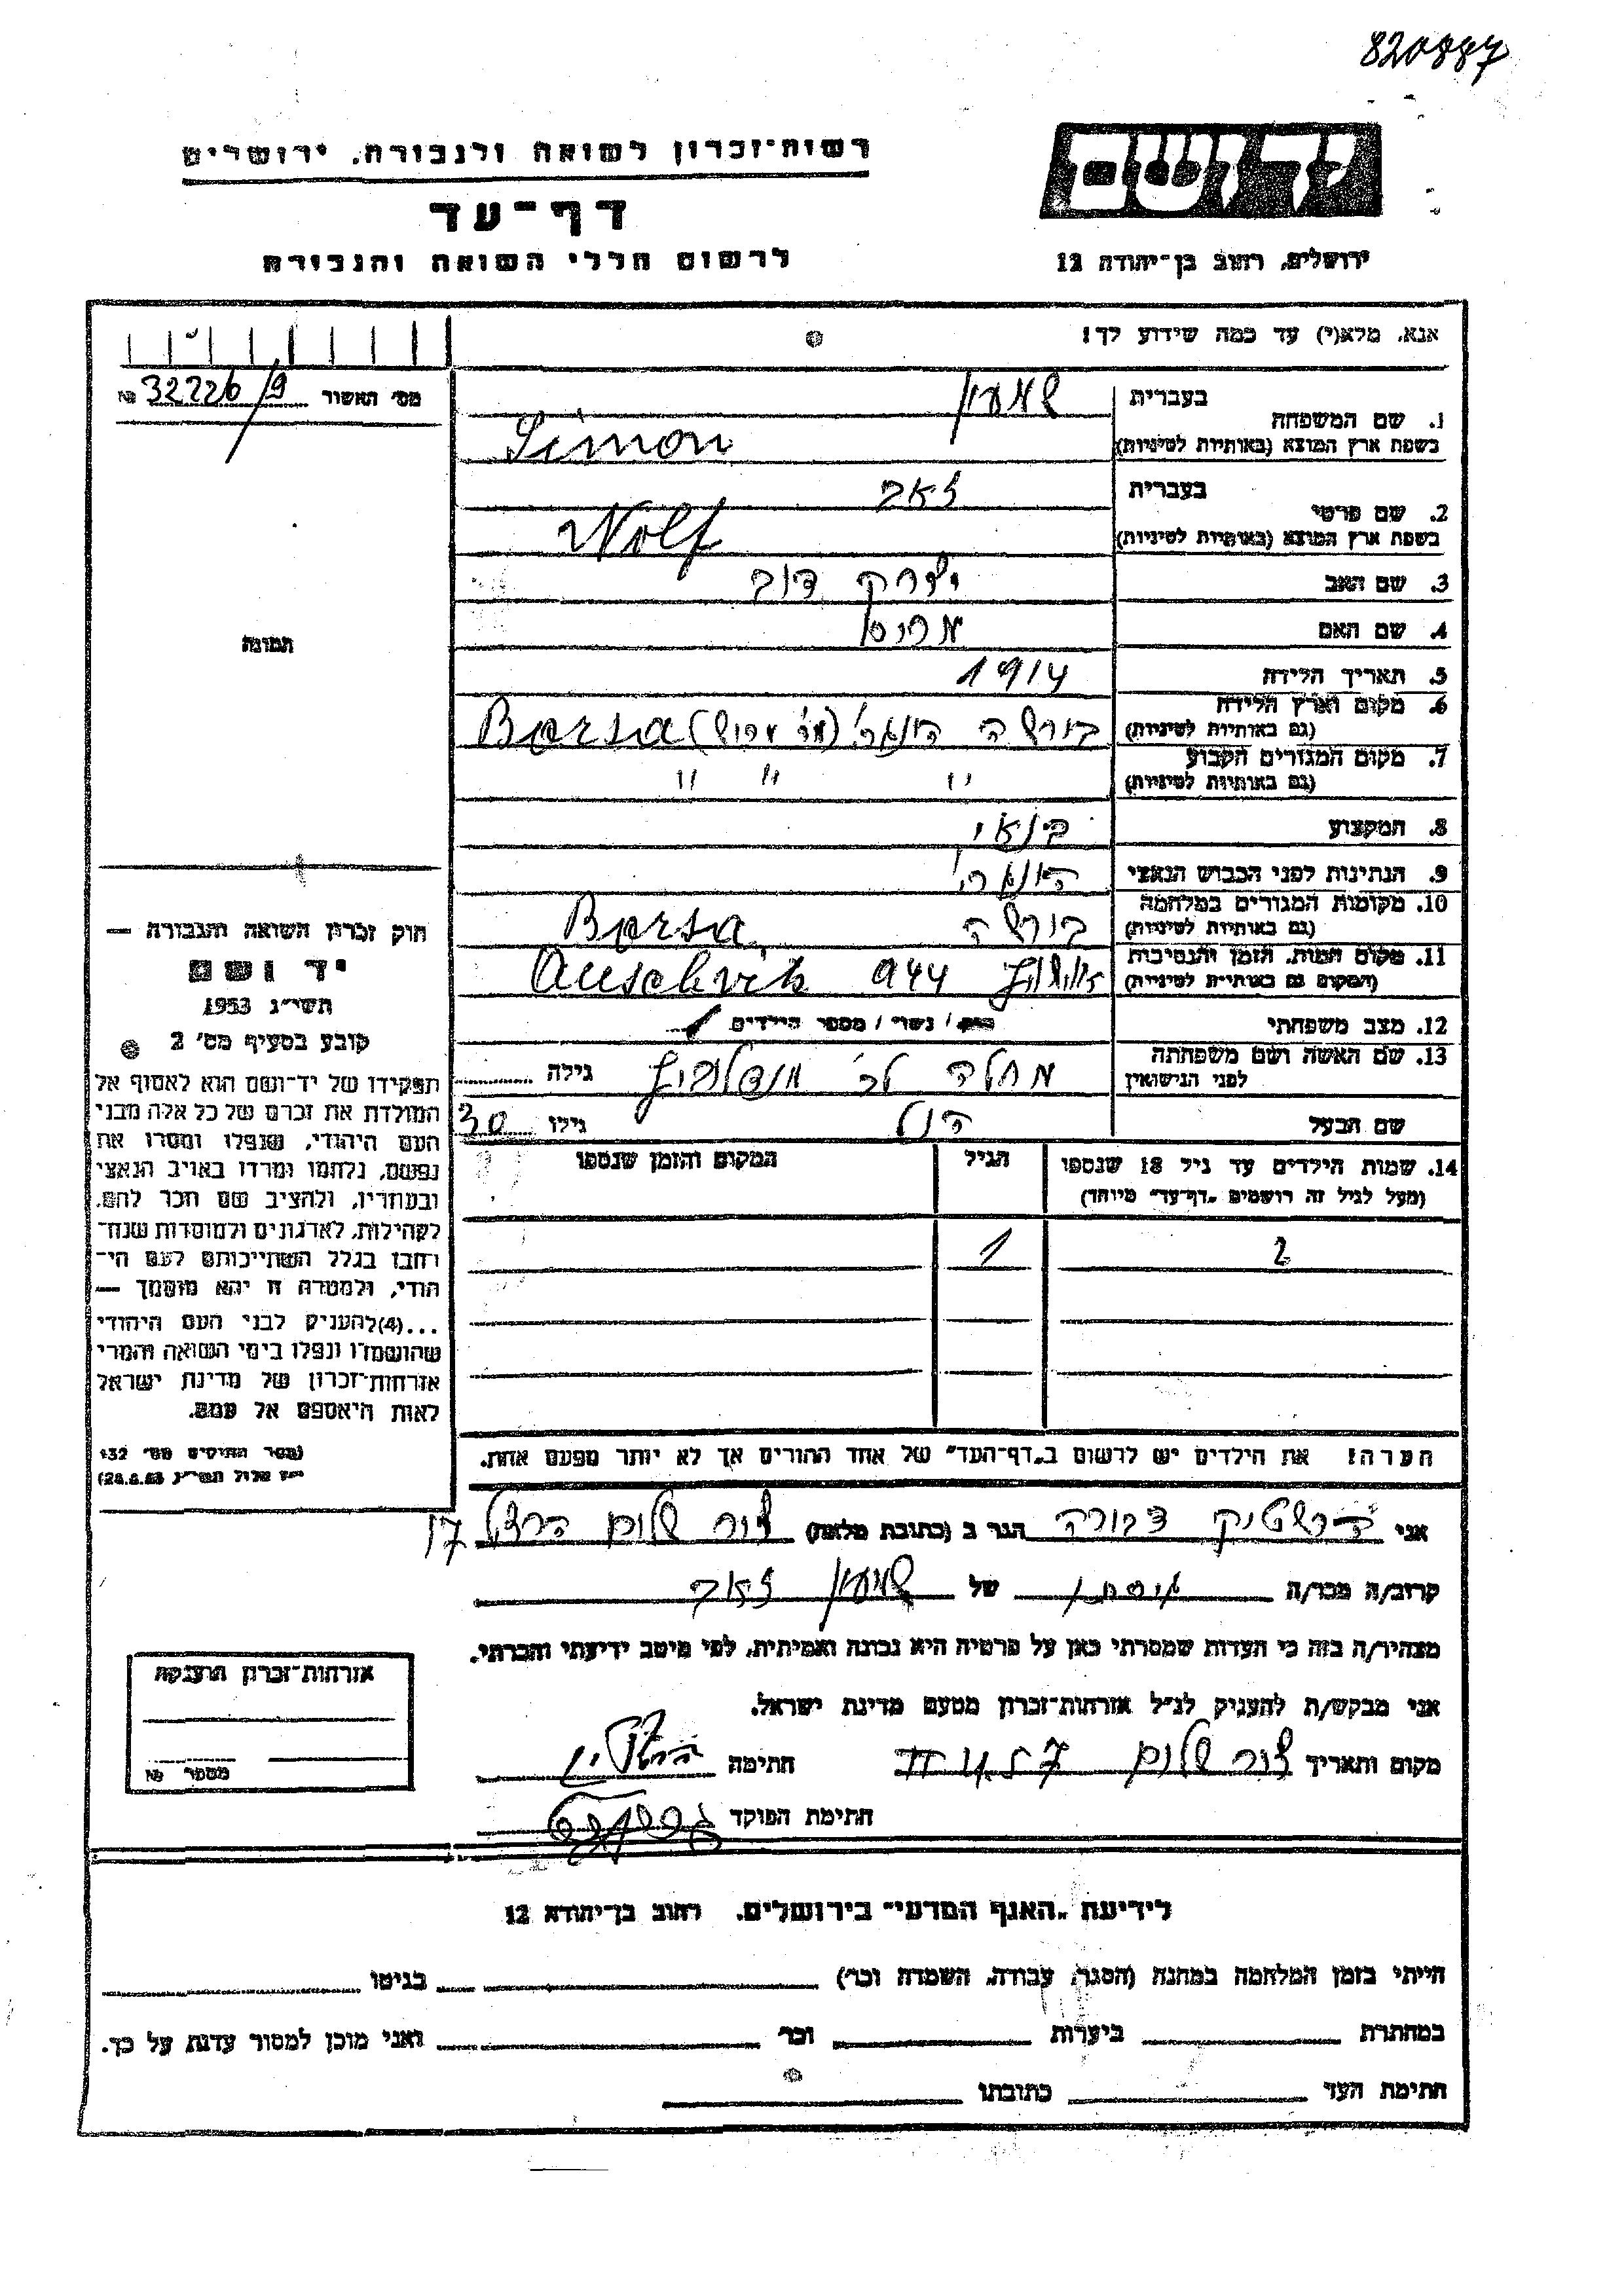 820887
רשות-זכרון לשואה ולגבורה, ירושלים
יד ושם
דף-עד
לרשום חללי השואה והגבורה
ירושלים, רחוב בן-יהודה 12
אנא, מלא(י) עד כמה שידוע לך!
מס' האשור 32226/9 №
1. שם המשפחה
בעברית שמעון
בשפת ארץ המוצא (באותיות לטיניות) Simon
2. שם פרטי
בעברית זאב
בשפת ארץ המוצא (באותיות לטיניות) Wolf
3. שם האב יצחק דוב
4. שם האם
תמונה
5. תאריך הלידה 1914
6. מקום וארץ הלידה
(גם באותיות לטיניות) בורשה Borsa
7. מקום המגורים הקבוע
(גם באותיות לטיניות) " " "
8. המקצוע בנאי
9. הנתינות לפני הכבוש הנאצי
10. מקומות המגורים במלחמה
(גם באותיות לטיניות) בורשה Borsa
11. מקום המות, הזמן והנסיבות
(המקום גם באותיות לטיניות) 944 Auschvitz
12. מצב משפחתי רווק / נשוי / מספר הילדים
13. שם האשה ושם משפחתה
לפני הנישואין מחלה לב' גילה
שם הבעל הנ"ל גילו 30
14. שמות הילדים עד גיל 18 שנספו הגיל המקום והזמן שנספו
(מעל לגיל זה רושמים „דף-עד" מיוחד)
2 1
חוק זכרון השואה והגבורה —
יד ושם
תשי"ג 1953
קובע בסעיף מס' 2
תפקידו של יד-ושם הוא לאסוף אל
המולדת את זכרם של כל אלה מבני
העם היהודי, שנפלו ומסרו את
נפשם, נלחמו ומרדו באויב הנאצי
ובעוזריו, ולהציב שם וזכר להם,
לקהילות, לארגונים ולמוסדות שנח-
רחבו בגלל השתייכותם לעם הי-
הודי, ולמטרה זו יהא מוסמך —
...(4)להעניק לבני העם היהודי
שהושמדו ונפלו בימי השואה והמרי
אזרחות-זכרון של מדינת ישראל
לאות היאספם אל עמם.
(ספר החוקים מס' 132
י"ז אלול תשי"ג 28.8.53)
הערה! את הילדים יש לרשום ב„דף-העד" של אחד ההורים אך לא יותר מפעם אחת.
אני דבורה הגר ב (כתובת מלאה) צור שלום הרצל 17
קרוב/ה מכר/ה של שמעון זאב
מצהיר/ה בזה כי העדות שמסרתי כאן על פרטיה היא נכונה ואמיתית, לפי מיטב ידיעתי והכרתי.
אני מבקש/ת להעניק לנ"ל אזרחות-זכרון מטעם מדינת ישראל.
מקום ותאריך צור שלום חתימה
חתימת הפוקד
אזרחות-זכרון הוענקה
מספר №
לידיעת „האגף המדעי" בירושלים, רחוב בן-יהודא 12
הייתי בזמן המלחמה במחנה (הסגר, עבודה, השמדה וכו') בגיטו
במחתרת ביערות וכו' ואני מוכן למסור עדות על כך.
חתימת העד כתובתו